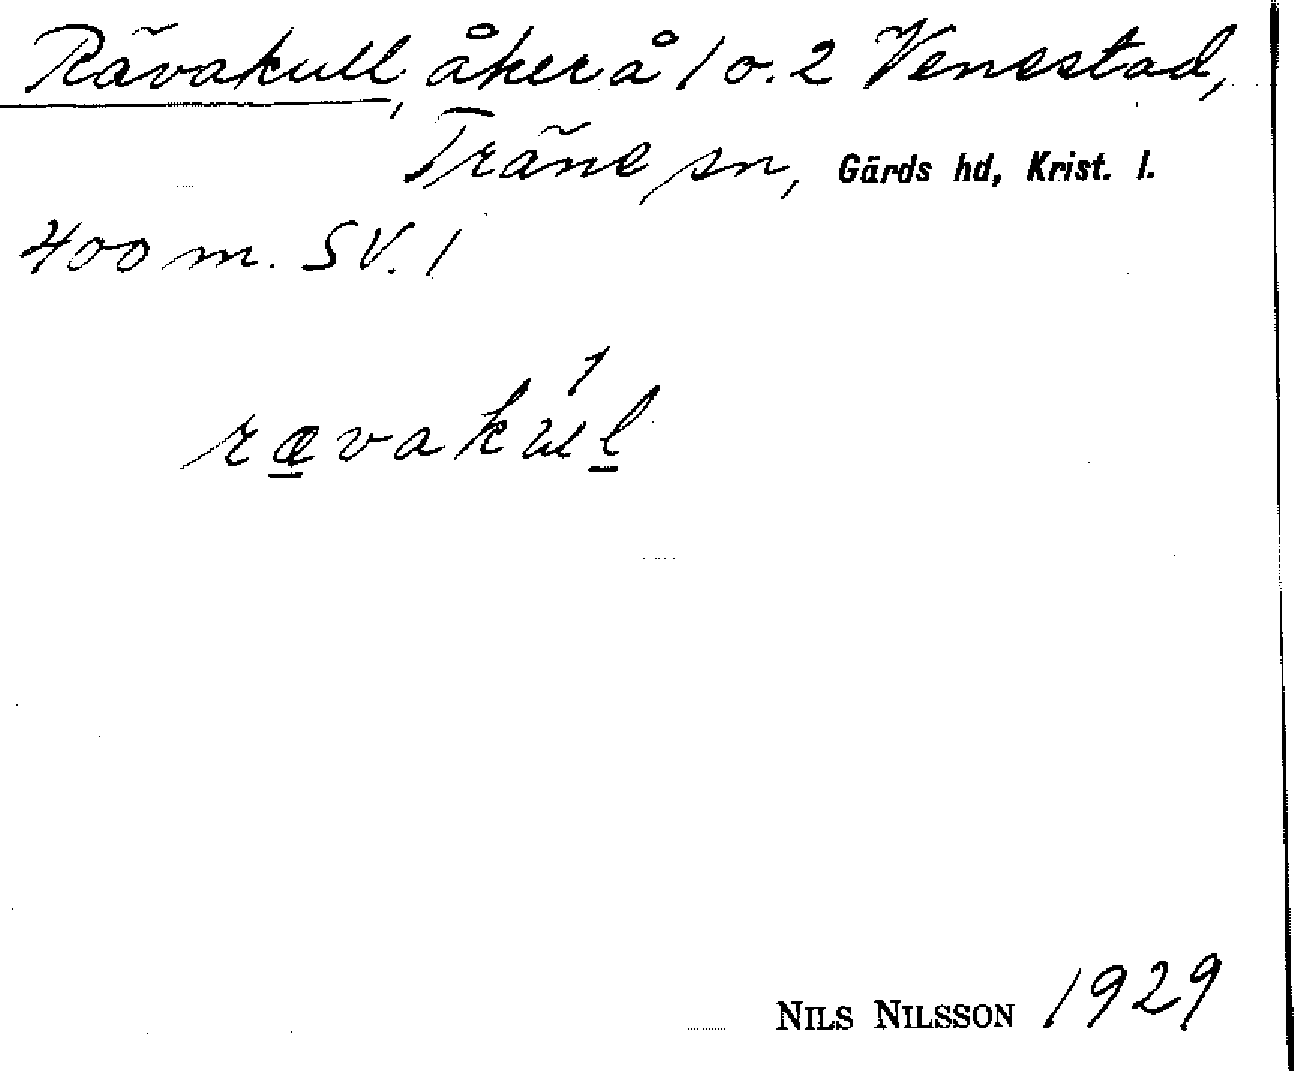 Rävakull, åker å 1 o. 2 Venestad,
Träne sn, Gärds hd, Krist. l.
400 m. SV. 1
rævakúl
NILS NILSSON 1929